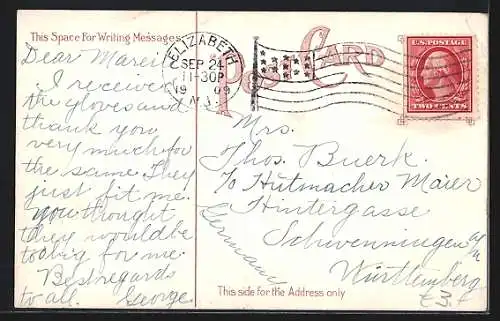 This Space For Writing Messages
Dear Marei
I receive
the gloves and
thank you
very much for
the same. They
just fit me.
You thought
they would be
to big for me.
Best regards
to all. George
ELIZABETH
SEP 24
11-30P
1909
N.J.
Post Card
U.S. POSTAGE
TWO CENTS
Mrs.
Thos. Buerk.
c/o Hutmacher Maier
Hintergasse
Schwenningen a/n
Württemberg
Germany
This side for the Address only